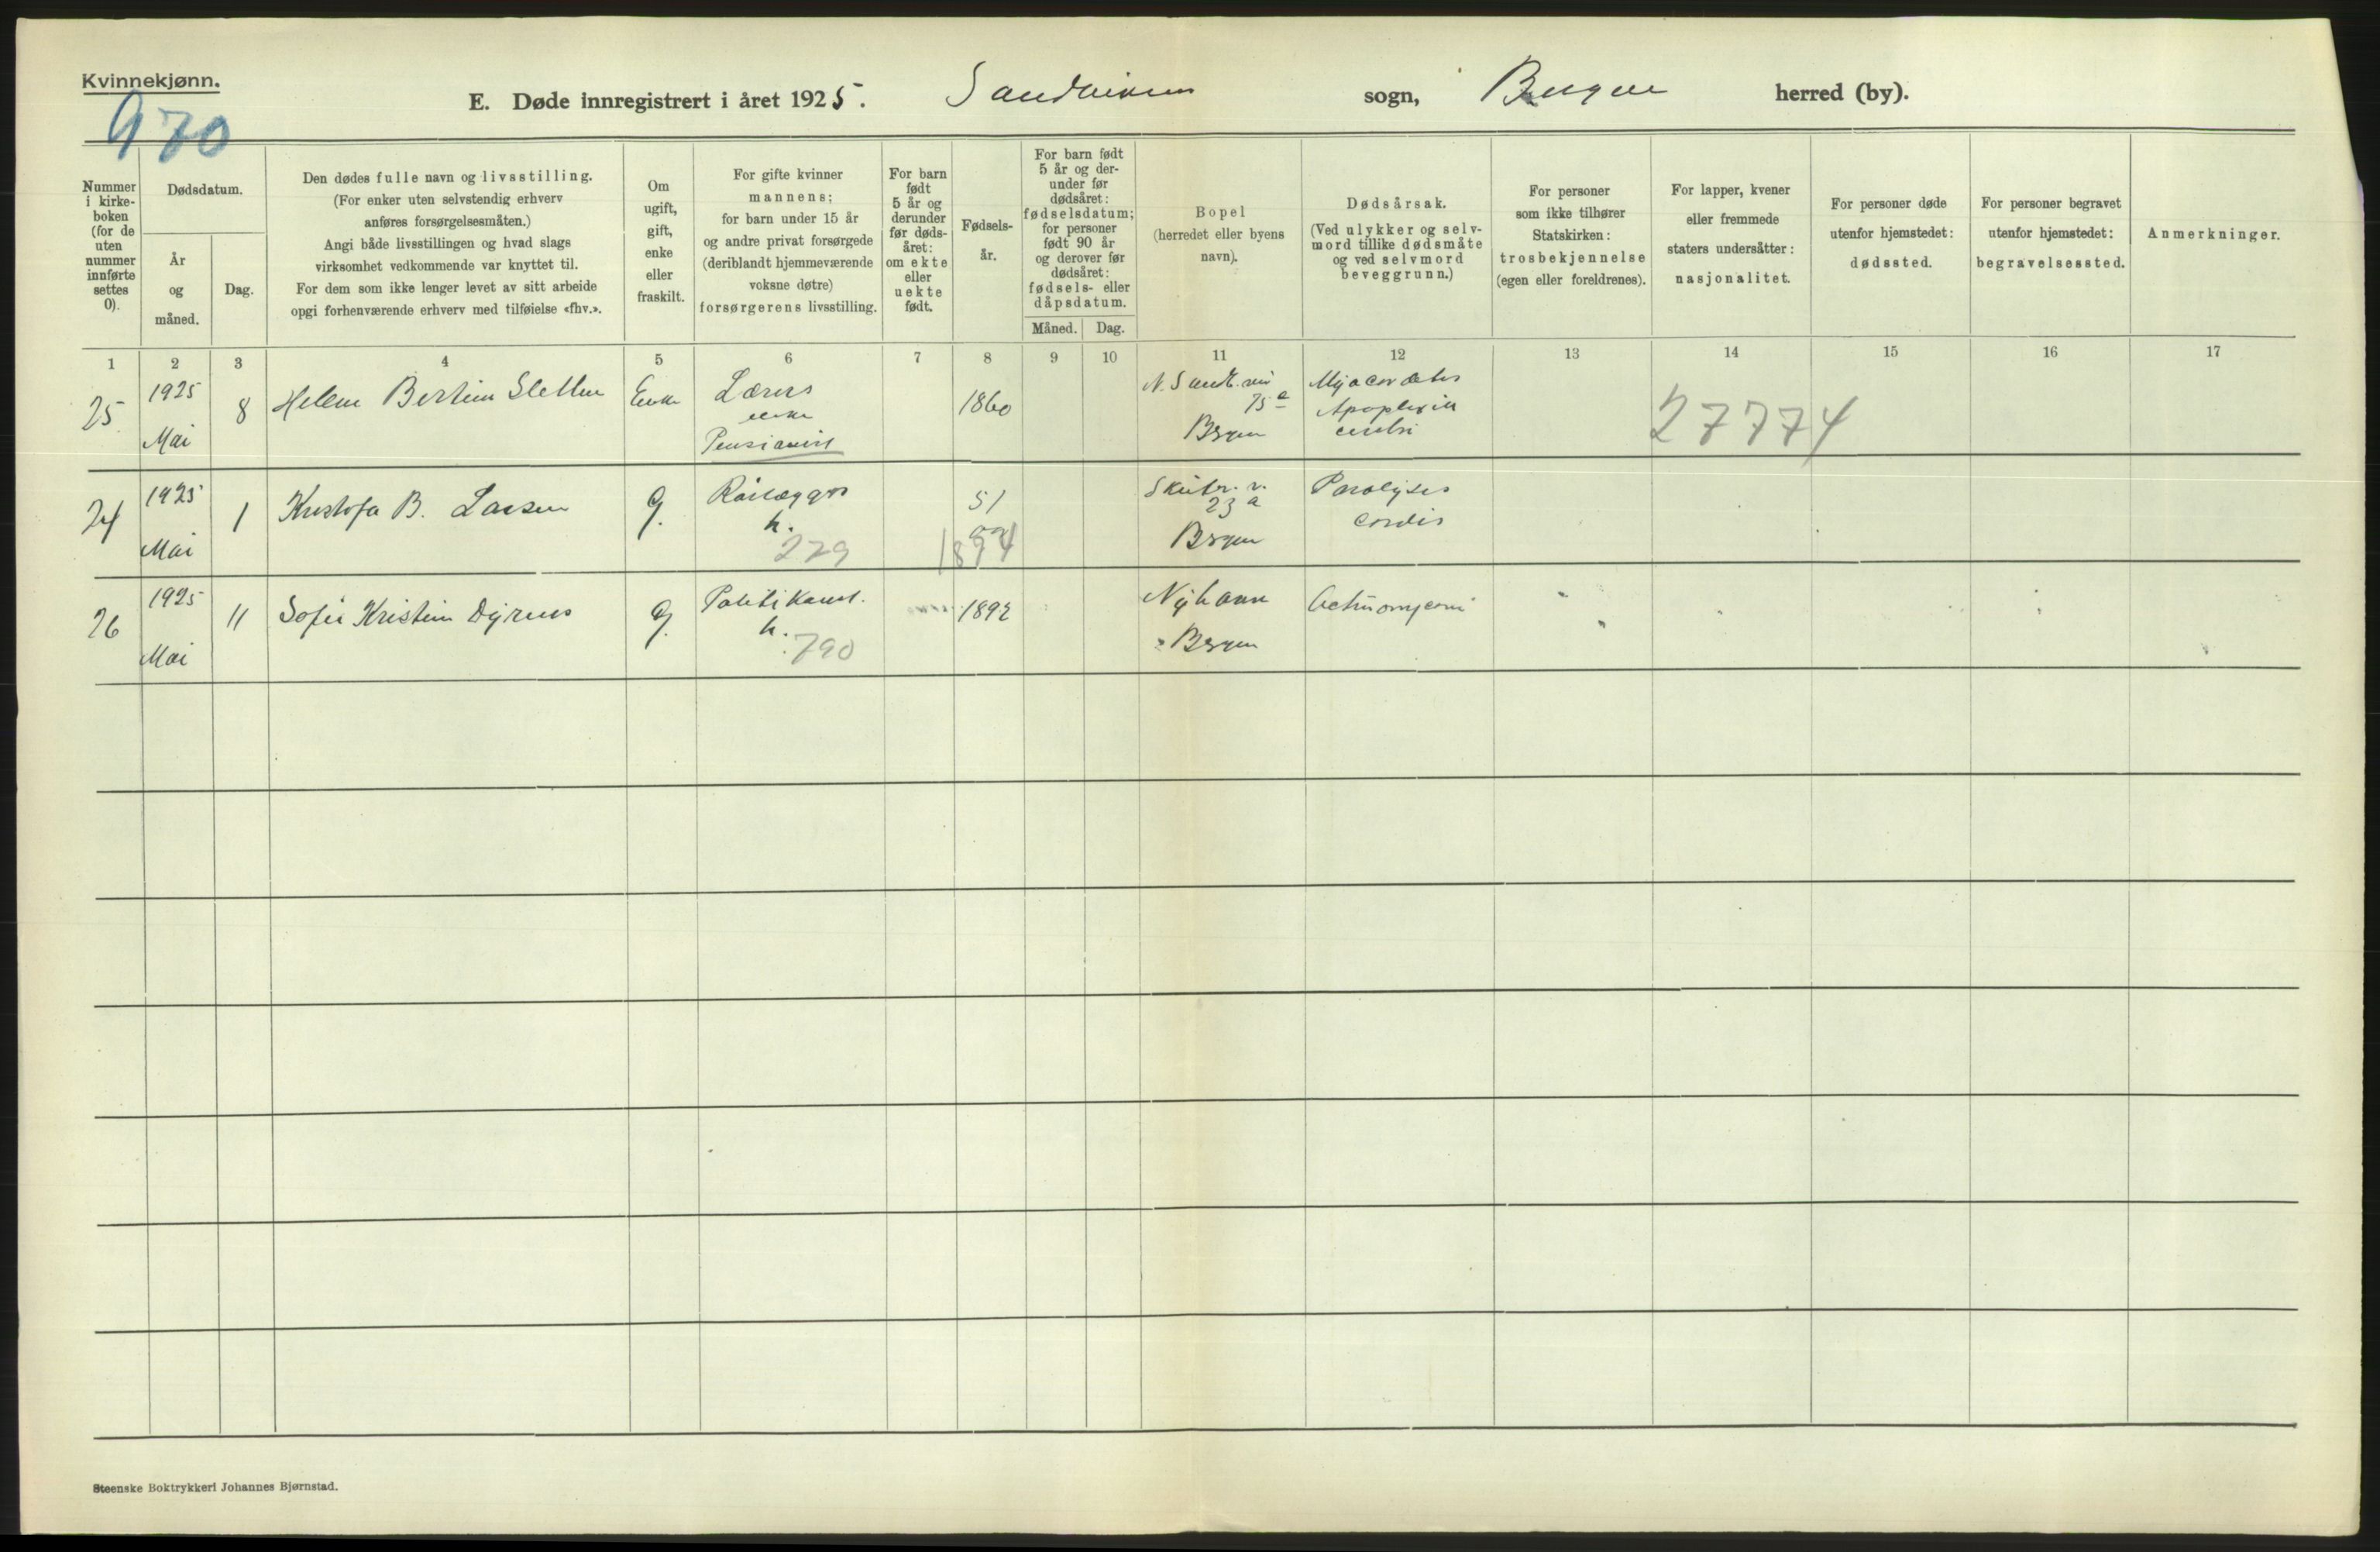 Kvinnekjønn.
970
E. Døde innregistrert i året 1925. Sandviken sogn, Bergen herred (by).
Nummer i kirke- boken (for de uten nummer innførte settes 0).
Dødsdatum.
År og måned.
Dag.
Den dødes fulle navn og livsstilling.
(For enker uten selvstendig erhverv
anføres forsørgelsesmåten.)
Angi både livsstillingen og hvad slags
virksomhet vedkommende var knyttet til.
For dem som ikke lenger levet av sitt arbeide
opgi forhenværende erhverv med tilføielse «fhv.».
Om
ugift,
gift,
enke
eller
fraskilt.
For gifte kvinner
mannens;
for barn under 15 år
og andre privat forsørgede
(deriblandt hjemmeværende
voksne døtre)
forsørgerens livsstilling.
For barn
født
5 år og
derunder
før døds-
året:
om ekte
eller
uekte
født.
Fødsels-
år.
For barn født
5 år og der-
under før
dødsåret:
fødselsdatum;
for personer
født 90 år
og derover før
dødsåret:
fødsels- eller
dåpsdatum.
Måned. Dag.
Bopel
(herredet eller byens
navn).
Dødsårsak.
(Ved ulykker og selv-
mord tillike dødsmåte
og ved selvmord
beveggrunn.)
For personer
som ikke tilhører
Statskirken:
trosbekjennelse
(egen eller foreldrenes).
For lapper, kvener
eller fremmede
staters undersåtter:
nasjonalitet.
For personer døde
utenfor hjemstedet:
dødssted.
For personer begravet
utenfor hjemstedet:
begravelsessted.
Anmerkninger.
1 2 3 4 5 6 7 8 9 10 11 12 13 14 15 16 17
25 1925 Mai 8 Helene Bertine Sletten Enke Lærers
enke
Pensionist
1860
N. Sandv. vei
75 a
Bergen
Myocarditis
Apoplexia
cerebri
27774
24 1925 Mai 1 Kristofa B. Larsen g. Rørlægger
h.
229
51
1874
Skutev. v.
23 a
Bergen
Paralysis
cordis
26 1925 Mai 11 Sofie Kristine Dyrnes g. Politikonst.
h.
790
1892
Nyhavn
Bergen
Actinomycosis
Steenske Boktrykkeri Johannes Bjørnstad.